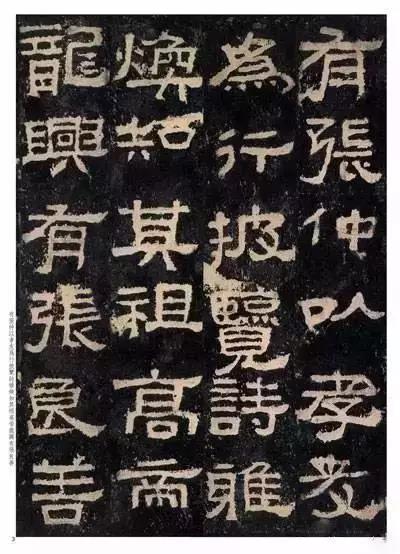 有張仲以孝友
為行披覽詩雅
煥知其祖高帝
龍興有張良善
有張仲以孝友爲行披覽詩雅煥知其祖高帝龍興有張良善
3